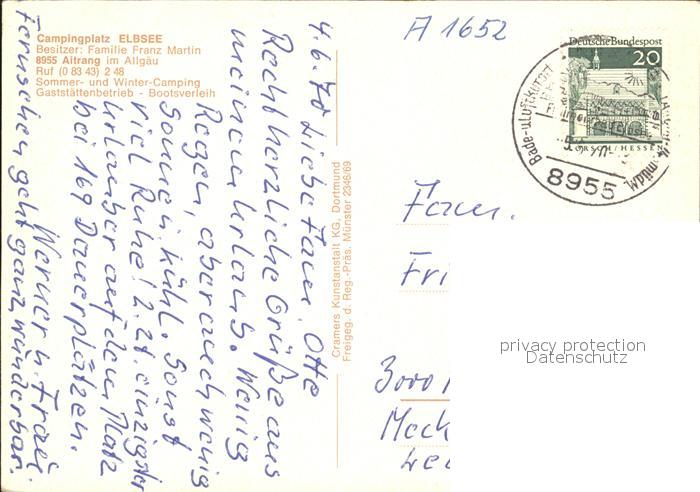 Campingplatz ELBSEE
Besitzer: Familie Franz Martin
8955 Aitrang im Allgäu
Ruf (0 83 43) 2 48
Sommer- und Winter-Camping
Gaststättenbetrieb - Bootsverleih
4.6.70 Liebe Fam. Otte
Recht herzliche Grüße aus
meinem Urlaub. Wenig
Regen, aber auch wenig
Sonne u. kühl. Sonst
viel Ruhe! z. Zt. einzigster
Urlauber auf dem Platz
bei 169 Dauerplätzen.
Werner u. Frau.
Fernsehen geht ganz wunderbar.
Cramers Kunstanstalt KG, Dortmund
Freigeg. d. Reg.-Präs. Münster 2346/69
A 1652
Deutsche Bundespost
20
LORSCH/HESSEN
Bade-u.Luftkurort
8955
Fam.
Fri
3000
Meck
privacy protection
Datenschutz